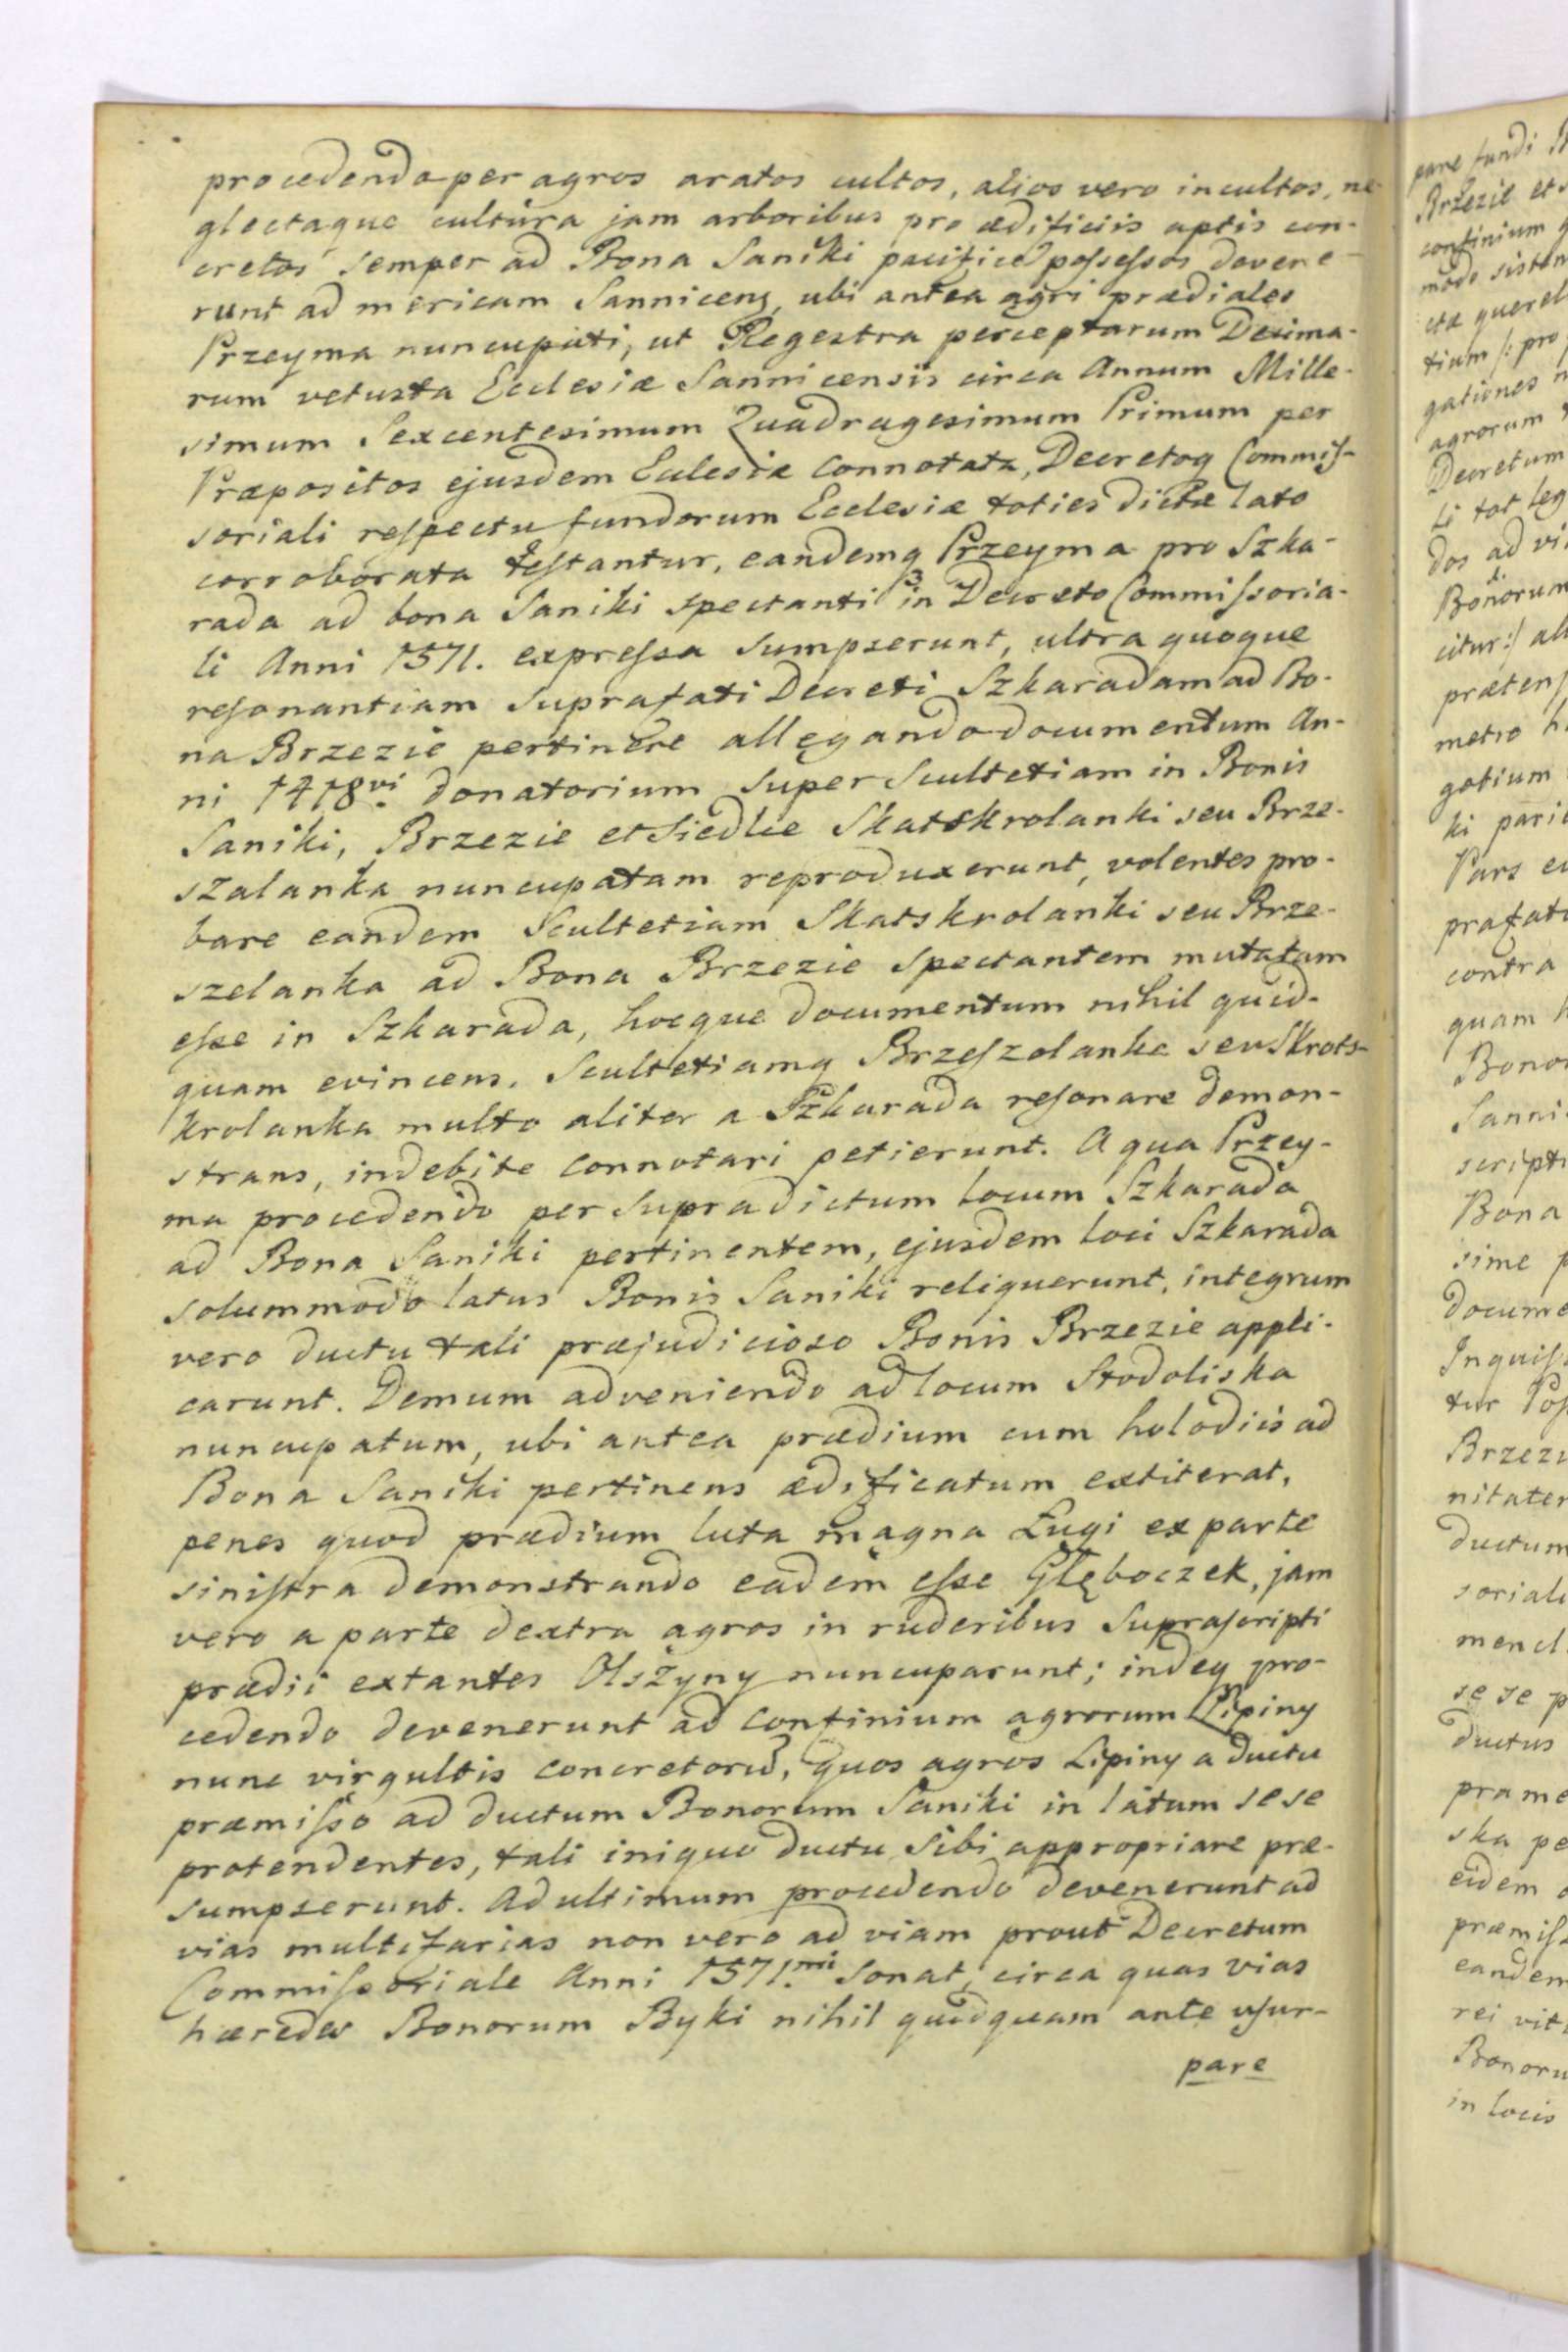 procedendo per agros aratos cultos, alios vero incultos, ne-
glectaque cultura jam arboribus pro ædificiis aptis con-
cretos semper ad Bona Saniki pacifice possessos devene-
runt ad mericam Sannicens, ubi antea agri prædiales
Przeyma nuncupati, ut Regestra perceptarum Decima-
rum vetusta Ecclesiæ Sannicensis circa Annum Mille-
simum Sexcentesimum Quadragesimum Primum per
Præpositos ejusdem Eclesiæ connotata, Decretoq Commis-
soriali respectu fundorum Ecclesiæ toties dictæ lato
corroborata testantur, eandemq Przeyma pro Szka-
rada ad bona Saniki spectanti in Decreto Commissoria-
li Anni 1571. expressa sumpserunt, ultra quoque
resonantiam suprafati Decreti Szkaradam ad Bo-
na Brzezie pertinere allegando documentum An-
ni 1418vi. donatorium super Scultetiam in Bonis
Saniki, Brzezie et Siedlce Skatskrolanki seu Brze-
szalanka nuncupatam reproduxerunt, volentes pro-
bare eandem Scultetiam Skatskrolanki seu Brze-
szelanka ad Bona Brzezie spectantem mutatam
esse in Szkarada, hocque documentum nihil quid-
quam evincens. Scultetiamq Brzeszolanka seu Skrots-
krolanka multo aliter a Szkarada resonare demon-
strans, indebite connotari petierunt. A qua Przey-
ma procedendo per supradictum locum Szkarada
ad Bona Saniki pertinentem, ejusdem loci Szkarada
solummodo latus Bonis Saniki reliquerunt, integrum
vero ductu tali præjudicioso Bonis Brzezie appli-
carunt. Demum adveniendo ad locum Stodoliska
nuncupatum, ubi antea prædium cum holodiis ad
Bona Saniki pertinens ædificatum extiterat,
penes quod prædium luta magna Ługi ex parte
sinistra demonstrando eadem esse Głęboczek, jam
vero a parte dextra agros in ruderibus suprascripti
prædii extantes Olszyny nuncuparunt; indeq pro-
cedendo devenerunt ad confinium agrorum Lipiny
nunc virgultis concretoru, quos agros Lipiny a ductu
præmisso ad ductum Bonorum Saniki in latum sese
protendentes, tali iniquo ductu sibi appropriare præ-
sumpserunt. Ad ultimum procedendo devenerunt ad
vias multifarias non vero ad viam prout Decretum
Commissoriale Anni 1571.mi sonat, circa quas vias
hæredes Bonorum Byki nihil quidquam ante usur-
pare
pare fundi
Brzezie et
confinium
modo
tium /: pro
gationes
agrorum
Decretum
li tot leg
dos ad
Bonorum
citur:/
præten
metro
gotium
ki
Pars
præfat
contra
quam
Bono
Sanni
script
Bona
sime
docume
Inquis
tur
Brzez
nitate
ductum
soriali
se se
ductus
præm
ska pe
eidem
præmis
eandem
rei
Bonoru
in locis